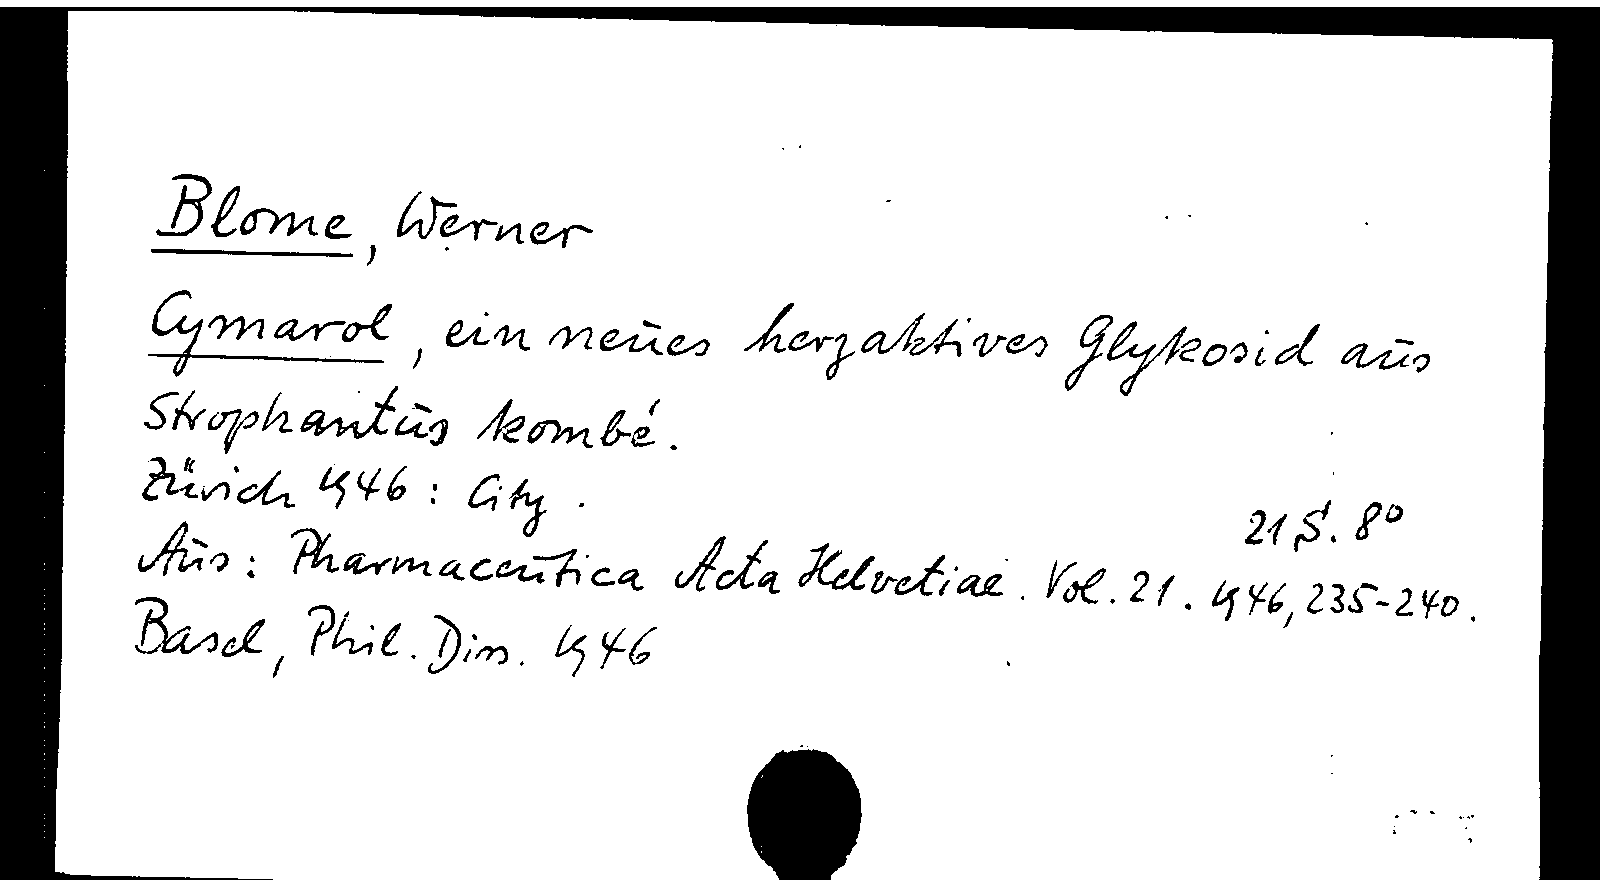 Blome, Werner
Cymarol, ein neues herzaktives Glykosid aus
Strophantus kombé.
Zürich 1946: City.
21 S. 8°
Aus: Pharmaceutica Acta Helvetiae. Vol. 21. 1946, 235-240.
Basel, Phil. Diss. 1946